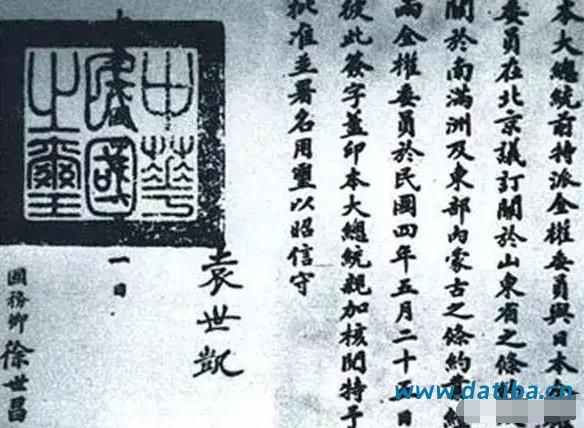 本大總統前特派全權委員與日本
委員在北京議訂關於山東省之條
關於南滿洲及東部內蒙古之條約業經
兩全權委員於民國四年五月二十五日
彼此簽字蓋印本大總統親加核閱特予
批准並署名用璽以昭信守
袁世凱
中華民國之璽
一日
國務卿 徐世昌
www.datiba.com